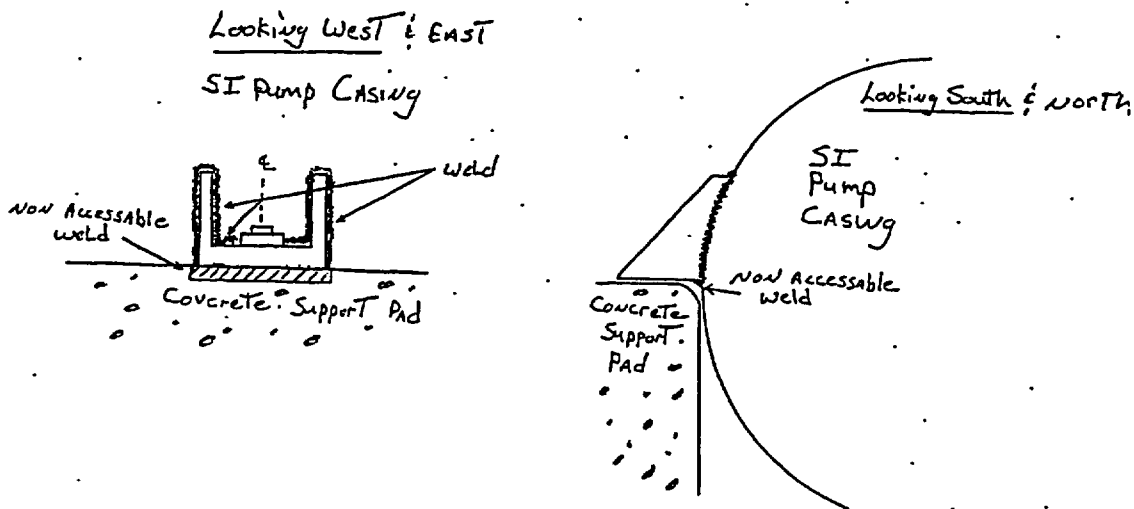 Looking West & EAST
SI Pump CASING
℄
weld
NON AccessAble
weld
Covcrete Support PAd
Looking South & NorTh
SI
Pump
CASWg
NON AccessAble
weld
Concrete
Support
PAd